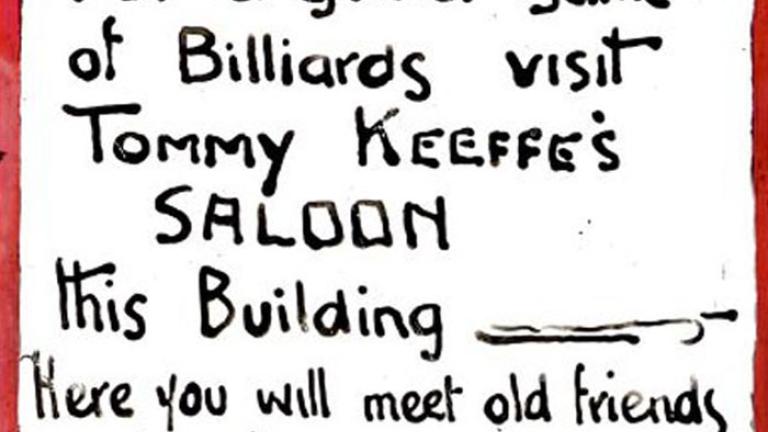 game
of Billiards visit
TOMMY KEEFFE'S
SALOON
this Building
Here you will meet old friends